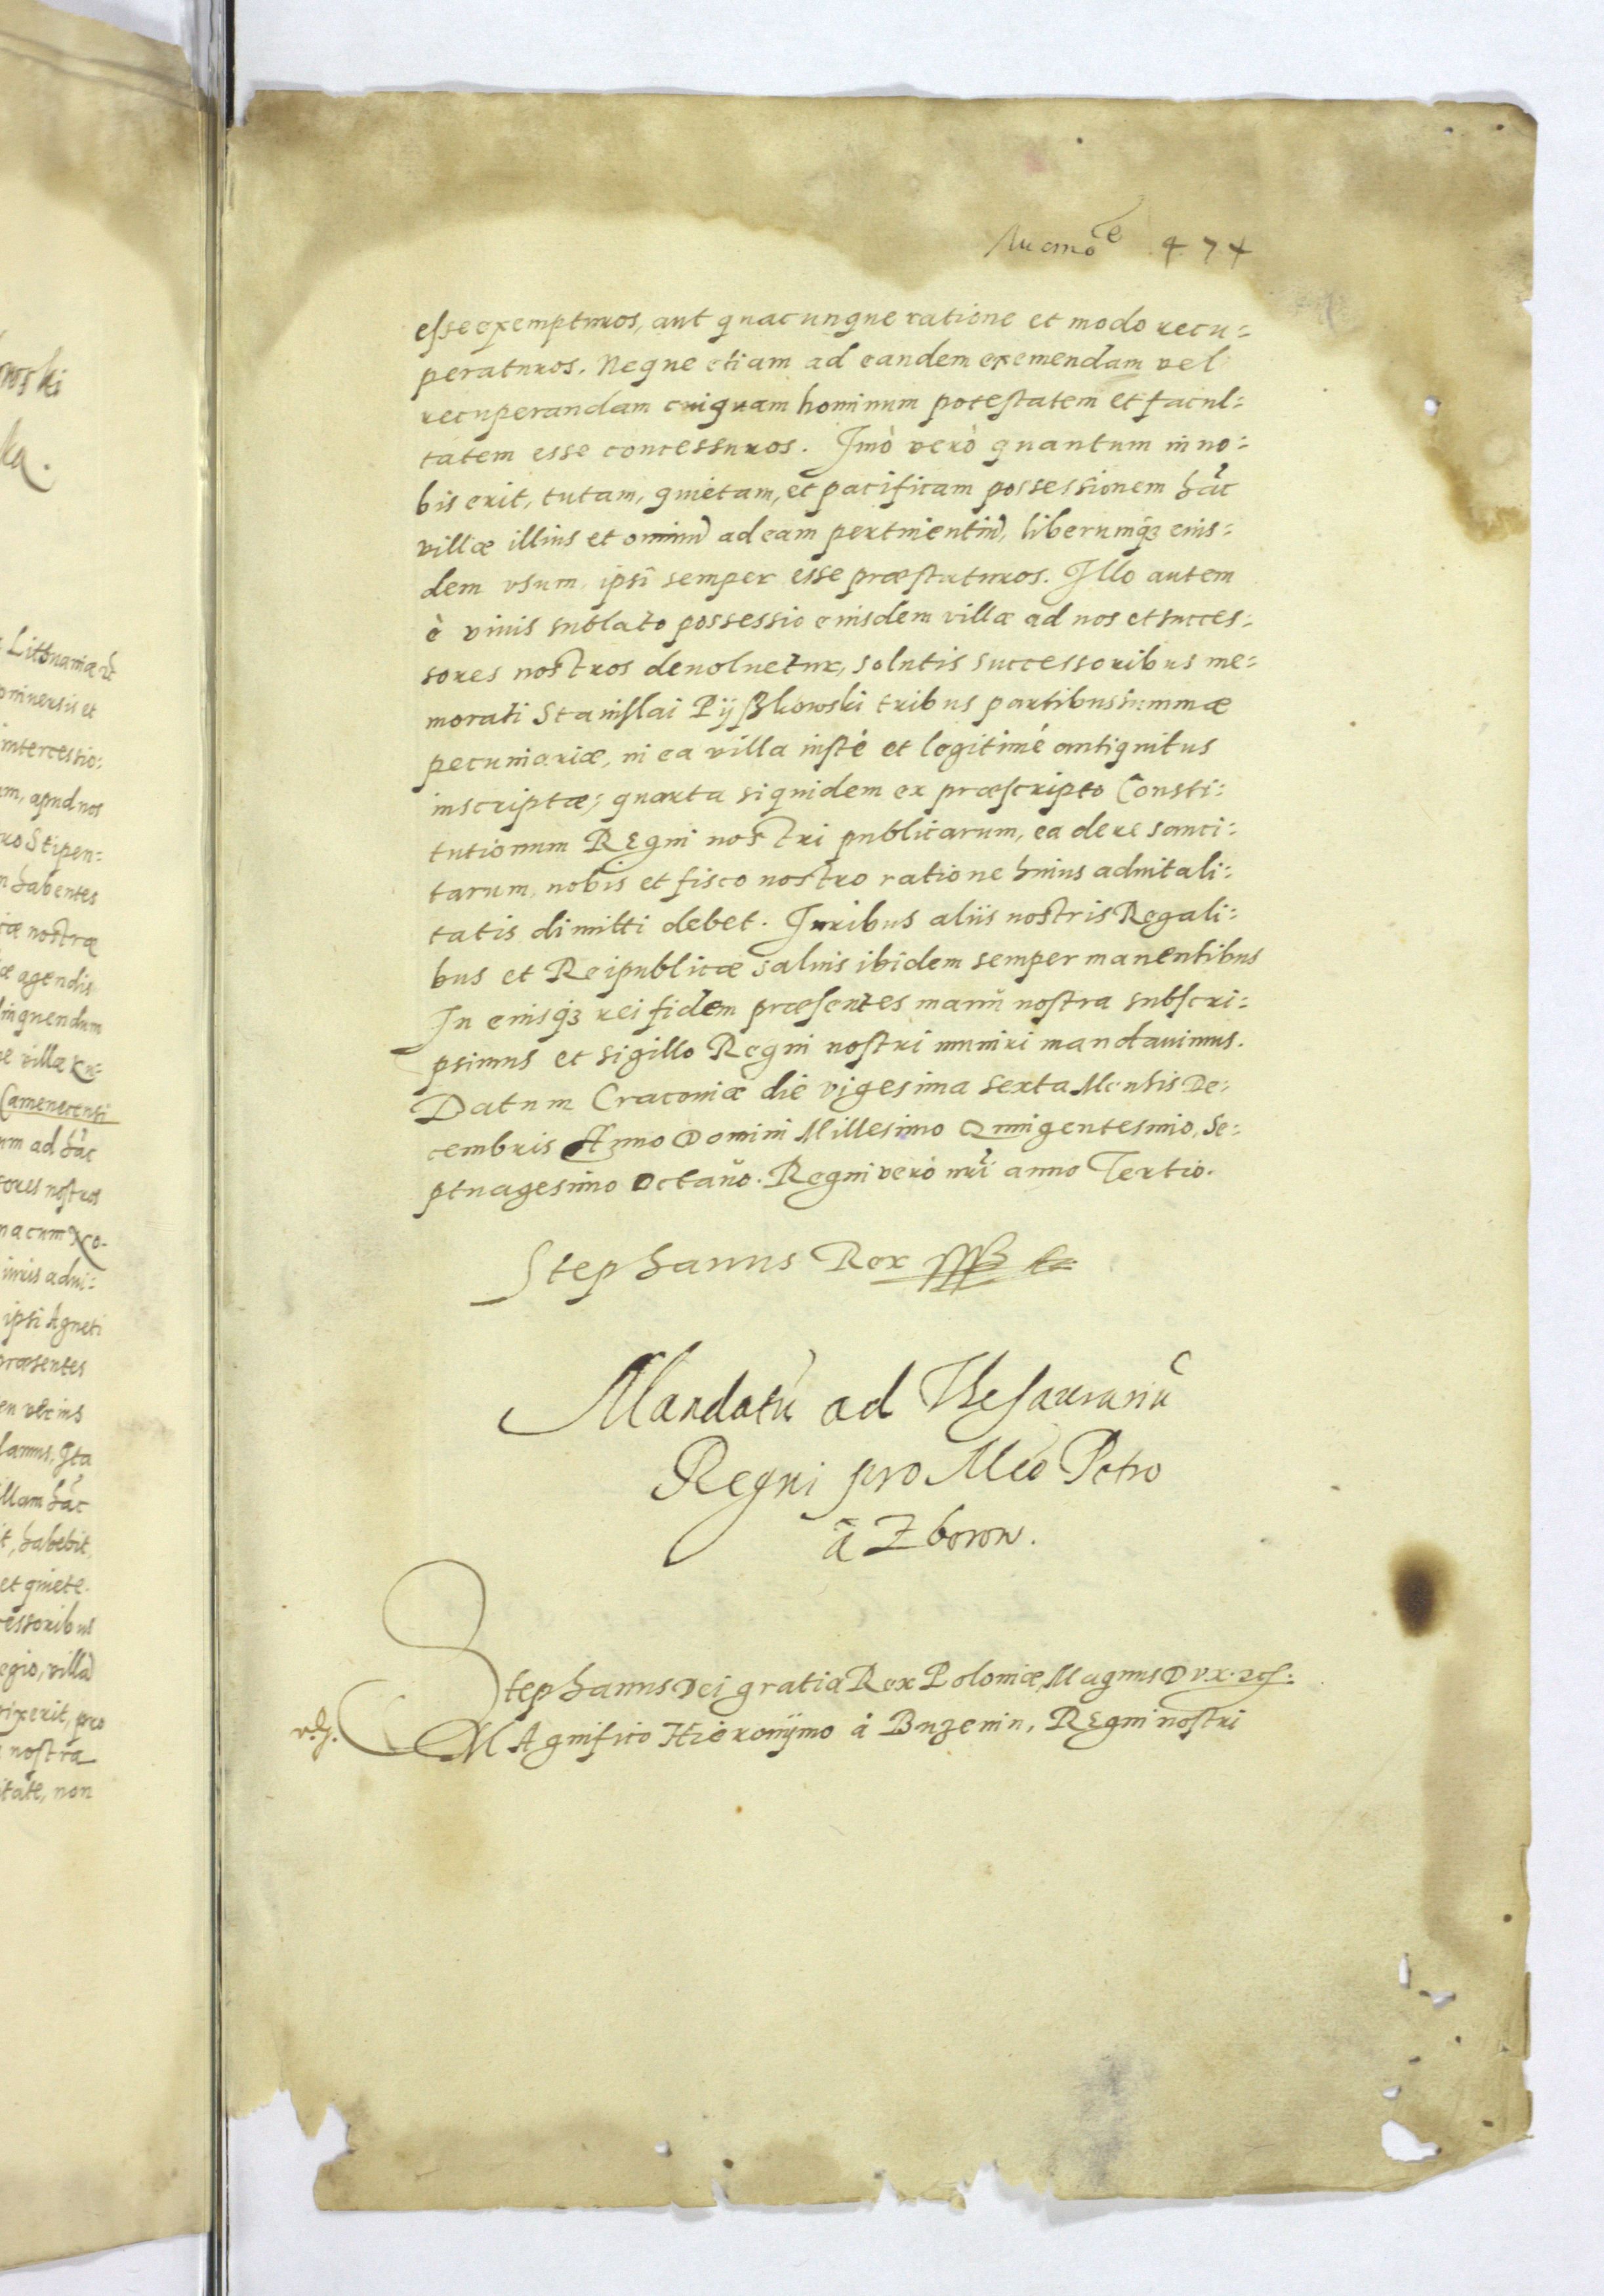 474
esse exempturos, aut quacunque ratione et modo recu:
peraturos. Neque etiam ad eandem exemendam vel
recuperandam cuiquam hominum potestatem et facul:
tatem esse concessuros. Imò verò quantum in no:
bis erit, tutam, quietam, et pacificam possessionem hãc
villæ illius et omniũ ad eam pertinentiũ, liberumq; eius:
dem vsum ipsi semper esse præstaturos. Illo autem
è viuis sublato possessio eiusdem villæ ad nos et succes:
sores nostros deuoluetur, solutis successoribus me:
morati Stanislai Pijßkowski tribus partibus summæ
pecuniariæ, in ea villa iustè et legitimè antiquitus
inscriptæ; quarta siquidem ex præscripto Consti:
tutionum Regni nostri publicarum, ea de re sanci:
tarum, nobis et fisco nostro ratione huius aduitali:
tatis dimitti debet. Iuribus aliis nostris Regali:
bus et Reipublicæ saluis ibidem semper manentibus
In eiusq; rei fidem præsentes manũ nostra subscri:
psimus et sigillo Regni nostri muniri mandauimus.
Datum Cracouiæ die vigesima sexta Mensis De:
cembris Anno Domini Millesimo Quingentesimo, Se:
ptuagesimo Octauo. Regni verò nri anno Tertio.
Stephanus Rex
Mandatũ ad Thesaurariũ
Regni pro Mco Petro
à Zborow.
Stephanus Dei gratia Rex Poloniæ, Magnus Dvx. etc:
MAgnifico Hieronijmo à Buzenin, Regni nostri
Littuaniæ
intercessio:
m, apud nos
ro Stipen:
habentes
nostræ
agendis
villæ
Camenecensi
um ad hãc
sores nostros
ipsi Agneti
præsentes
Ita
illam hãc
t, habebit,
et quiete
essoribus
egio, villã
nostra
itate, non